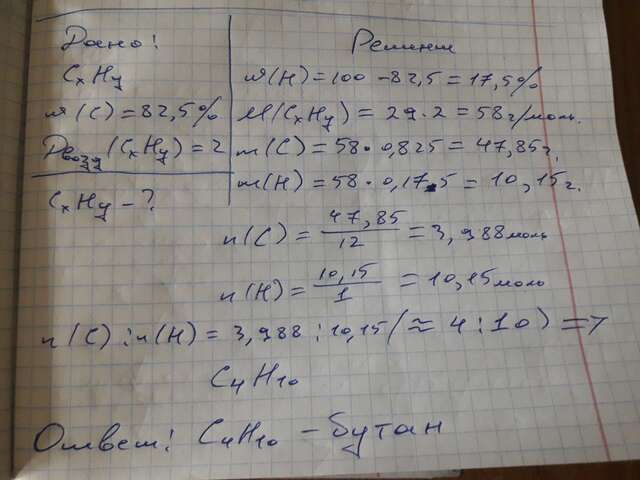 Дано:
CxHy
w(C) = 82,5%
Dвозд(CxHy) = 2
CxHy - ?
Решение
w(H) = 100 - 82,5 = 17,5%
M(CxHy) = 29·2 = 58 г/моль.
m(C) = 58·0,825 = 47,85г.
m(H) = 58·0,175 = 10,15г.
n(C) = 47,85/12 = 3,988моль
n(H) = 10,15/1 = 10,15моль
n(C):n(H) = 3,988:10,15(≈4:10) =>
C4H10
Ответ: C4H10 - бутан